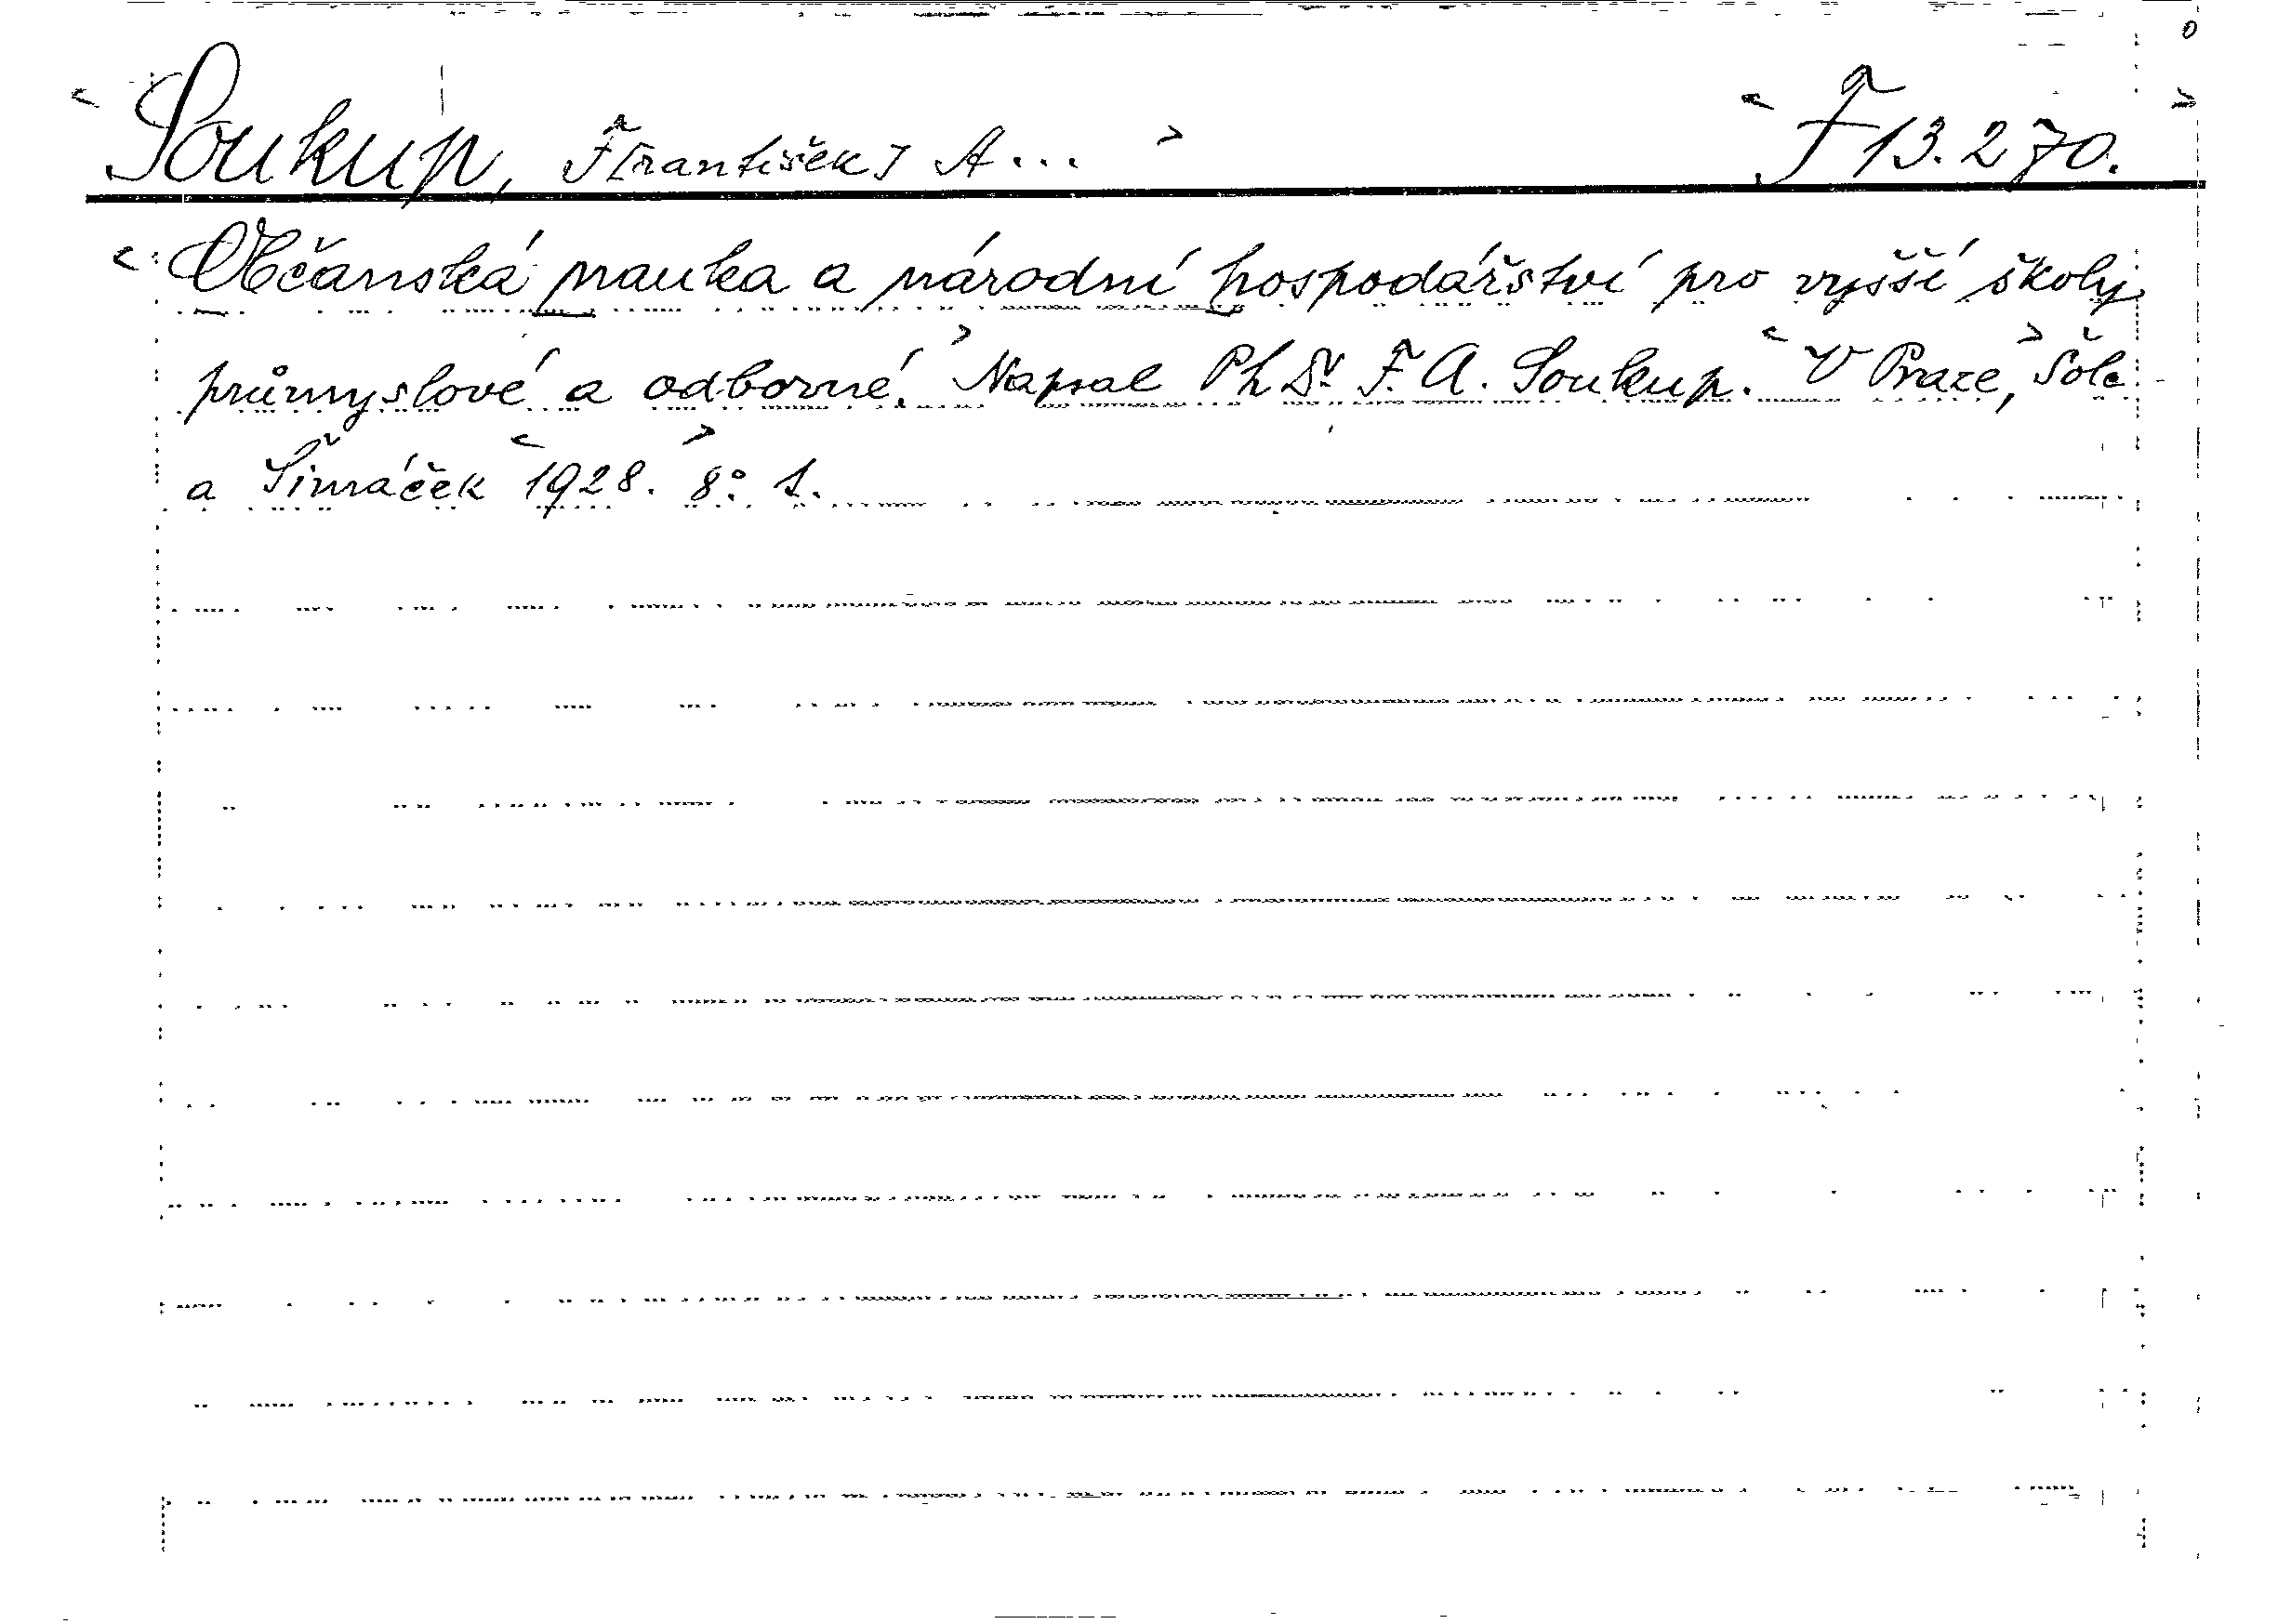 < Soukup, F[rantišek] A... > < F 13.270. >
< Občanská nauka a národní hospodářství pro vyšší školy
průmyslové a odborné. > Napsal Ph Dr. F. A. Soukup. < V Praze, > Šolc
a Šimáček < 1928. > 8°. 1.